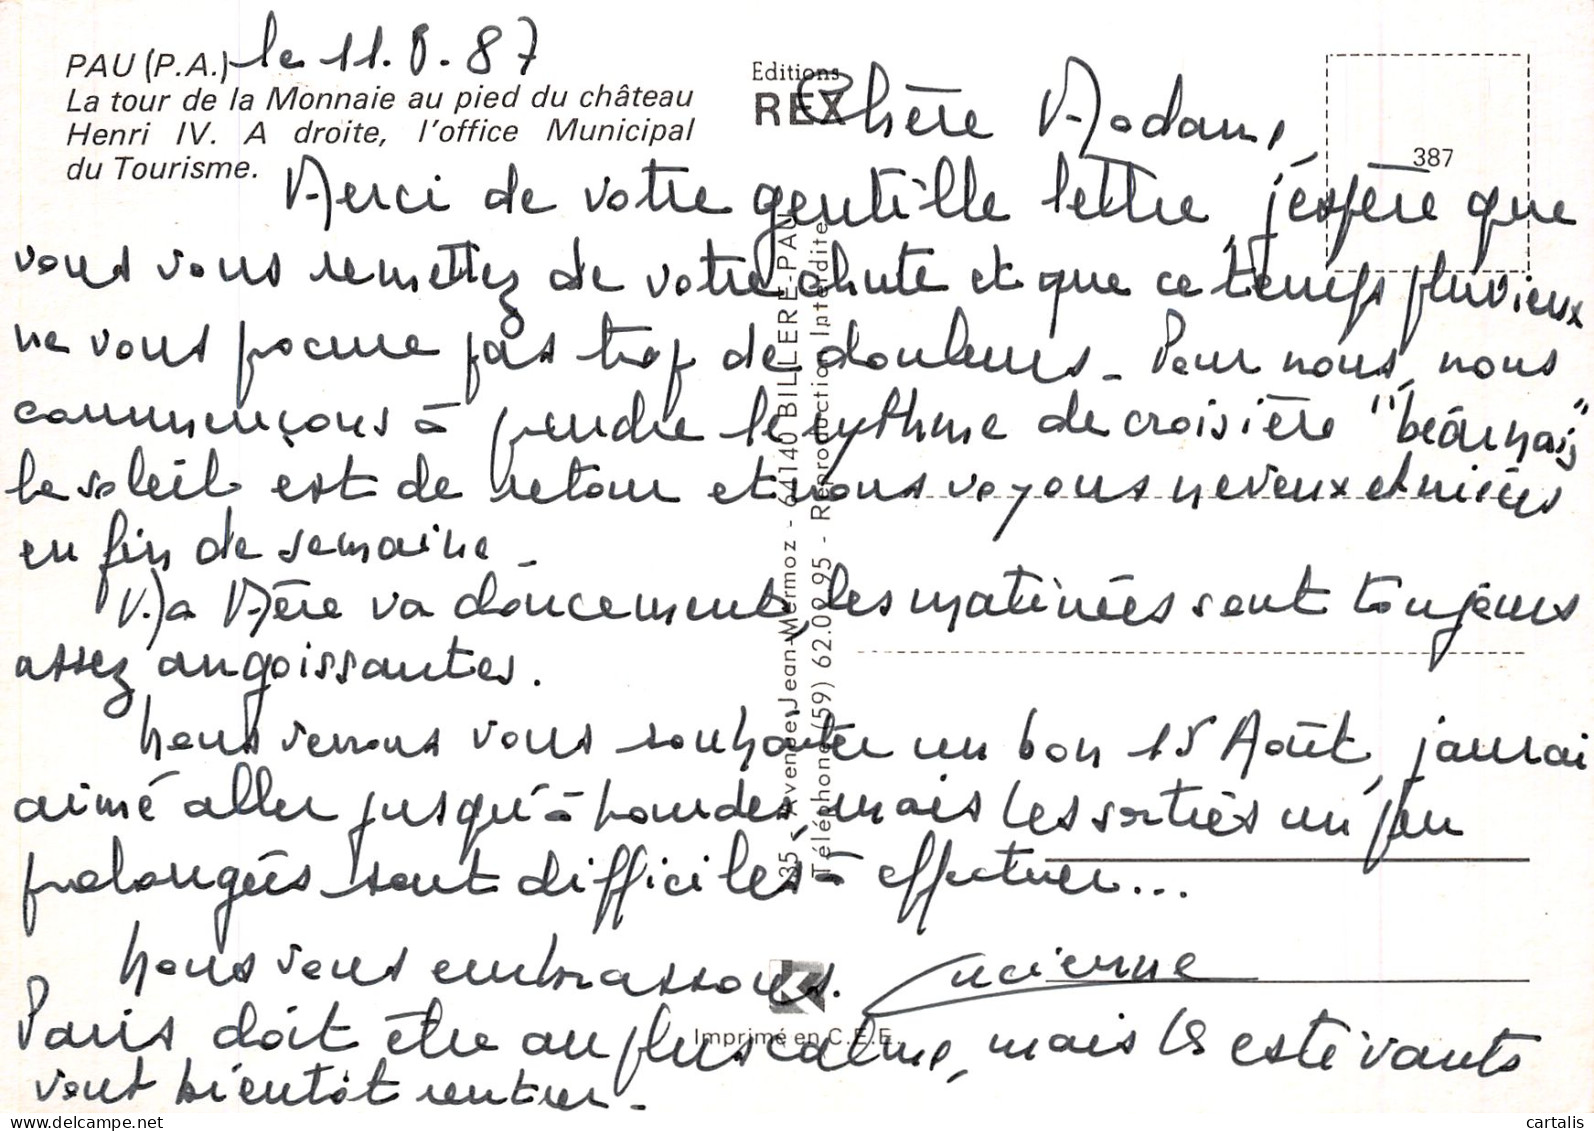 PAU (P.A.) le 11.8.87
La tour de la Monnaie au pied du château
Henri IV. A droite, l'office Municipal
du Tourisme.
Editions
REX
387
Chère Madame,
Merci de votre gentille lettre, j'espère que
vous vous remettez de votre chute et que ce temps pluvieux
ne vous procure pas trop de douleurs - Pour nous, nous
commençons à prendre le rythme de croisière "béarnais"
le soleil est de retour et nous voyons neveux et nièces
en fin de semaine -
Ma Mère va doucement, les matinées sont toujours
assez angoissantes.
Nous venons vous souhaiter un bon 15 Août, j'aurai
aimé aller jusqu'à Lourdes, mais les sorties un peu
prolongées sont difficiles à effectuer...
Nous vous embrassons. Lucienne
Paris doit être au plus calme, mais les estivants
vont bientôt rentrer -
35, Avenue Jean-Mermoz - 64140 BILLERE-PAU
Téléphone (59) 62.09.95 - Reproduction Interdite
Imprimé en C.E.E.
delcampe.net
cartalis